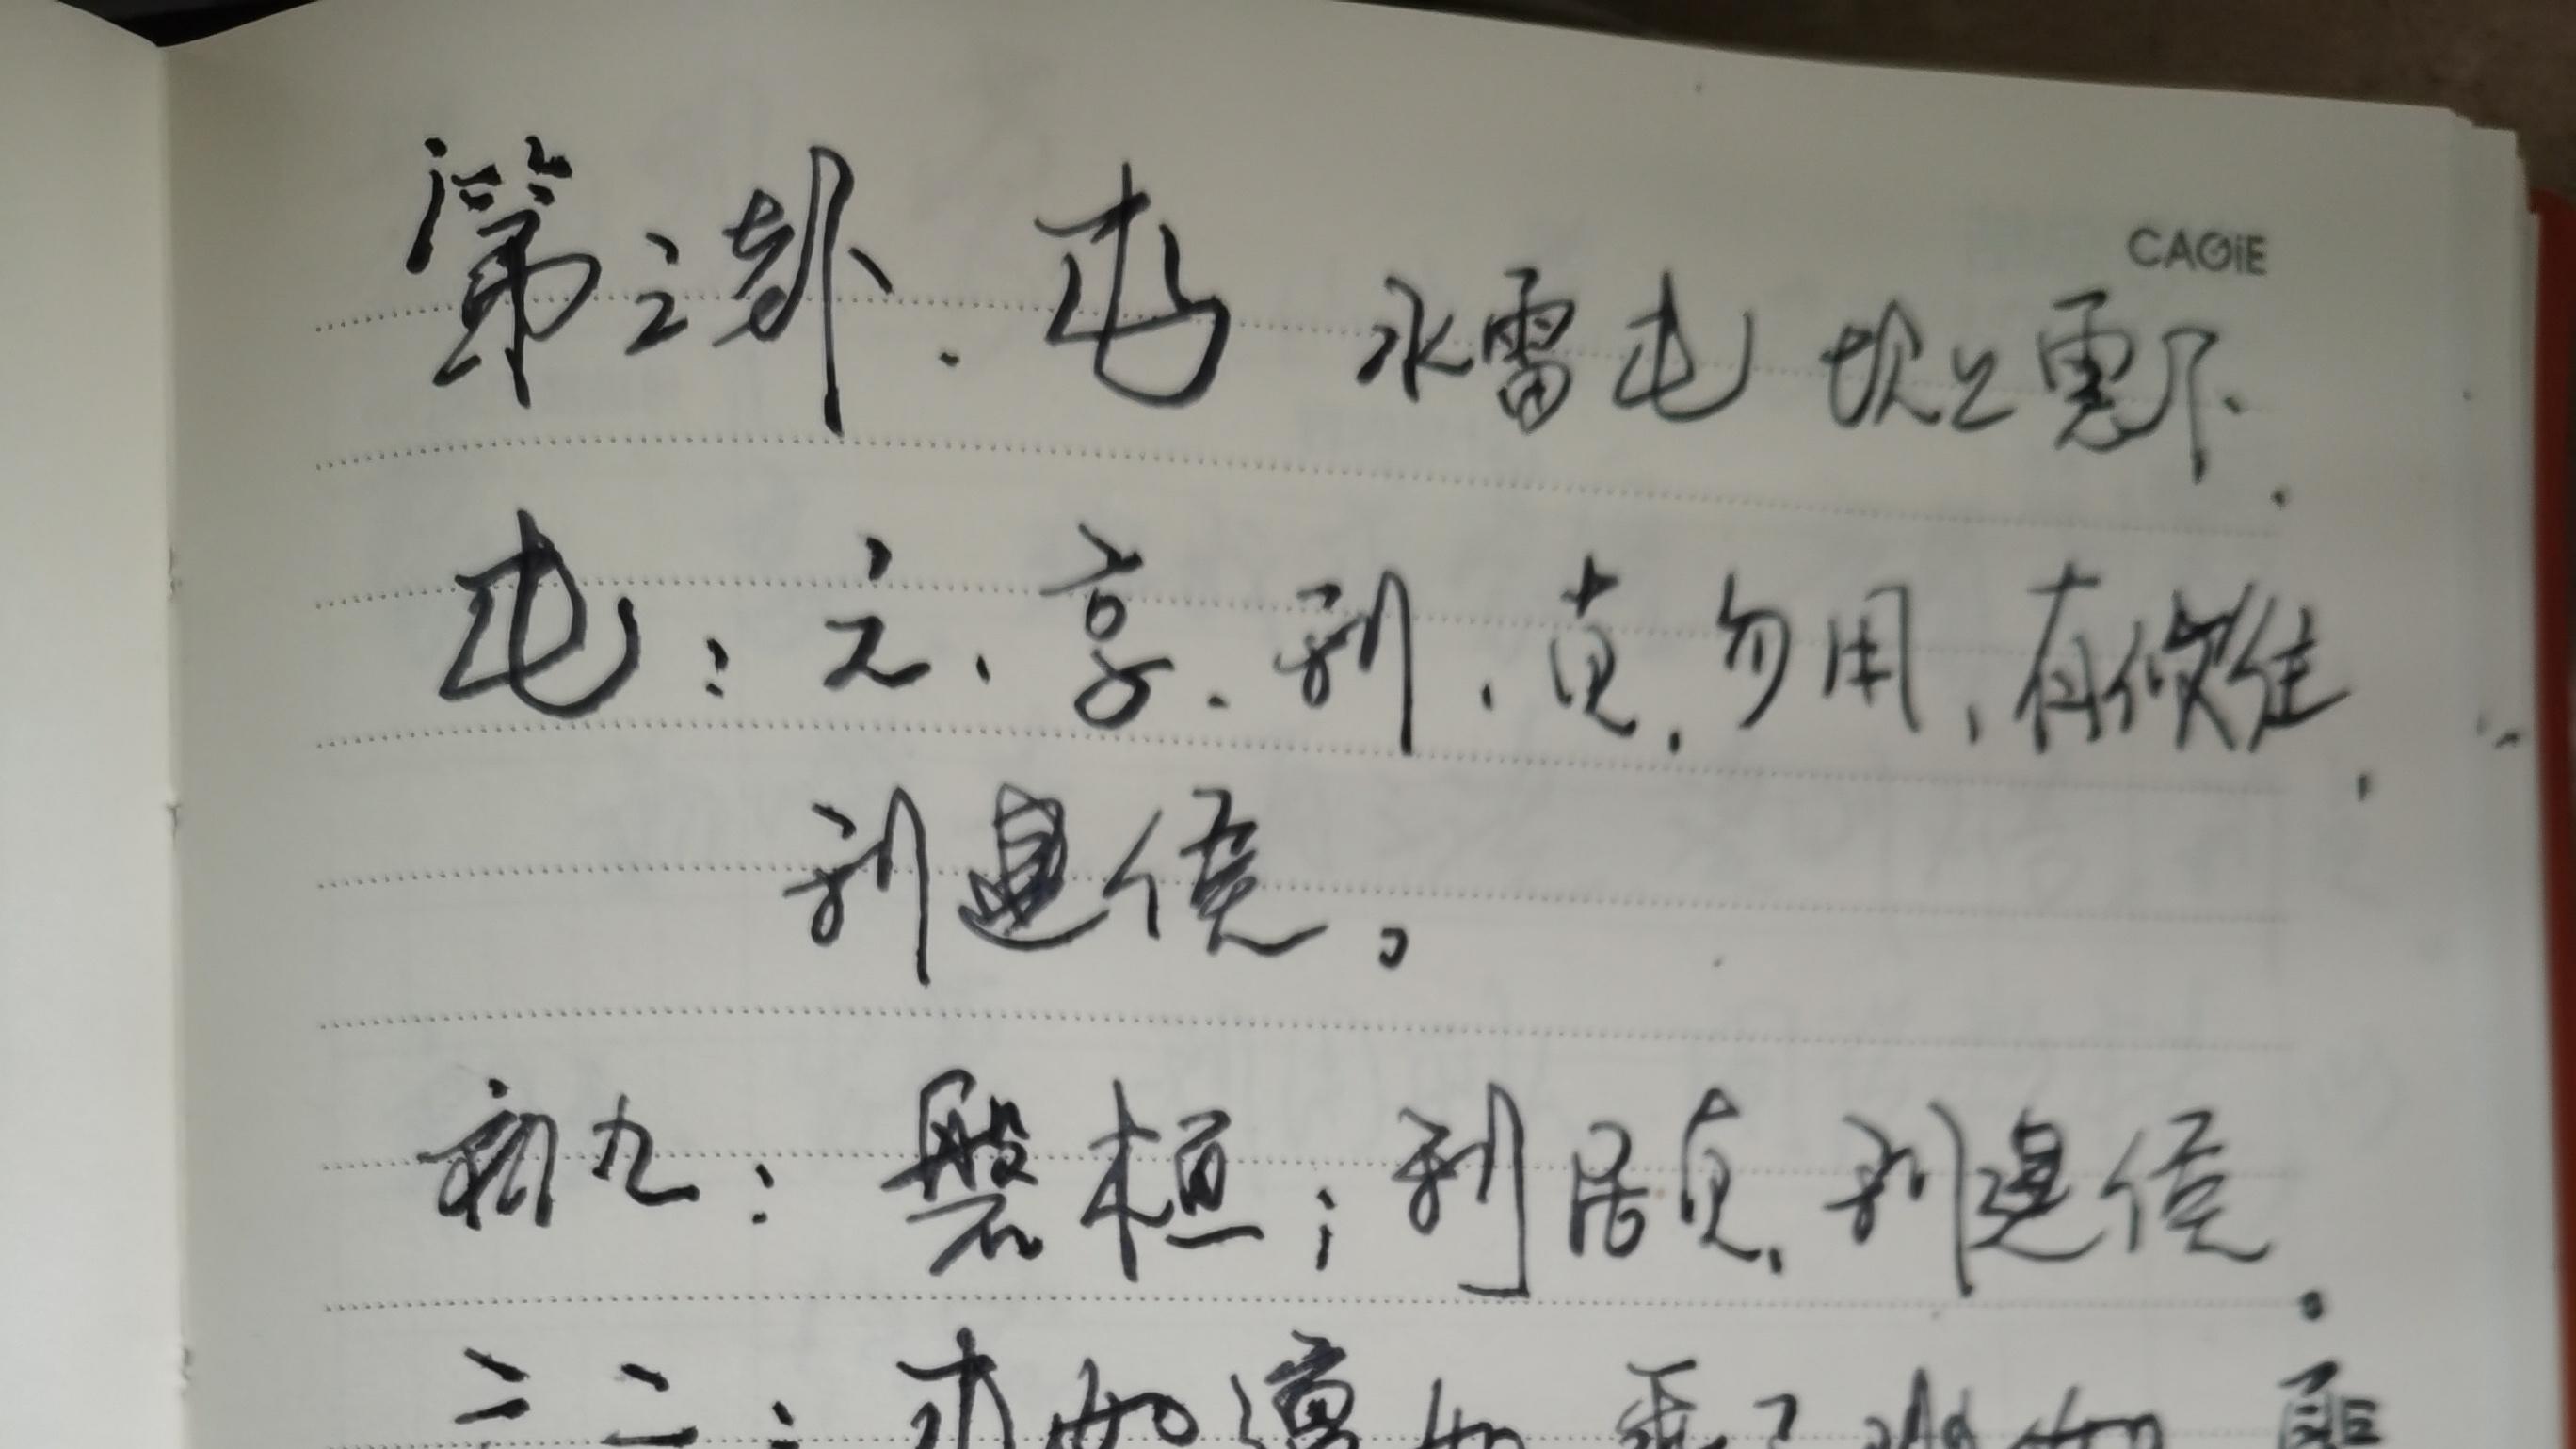 第三卦、屯 水雷屯 坎上震下.
CAGiE
屯：元、亨、利、贞，勿用，有攸往，
利建侯。
初九：磐桓；利居贞，利建侯。
六二：屯如邅如，乘马班如，匪